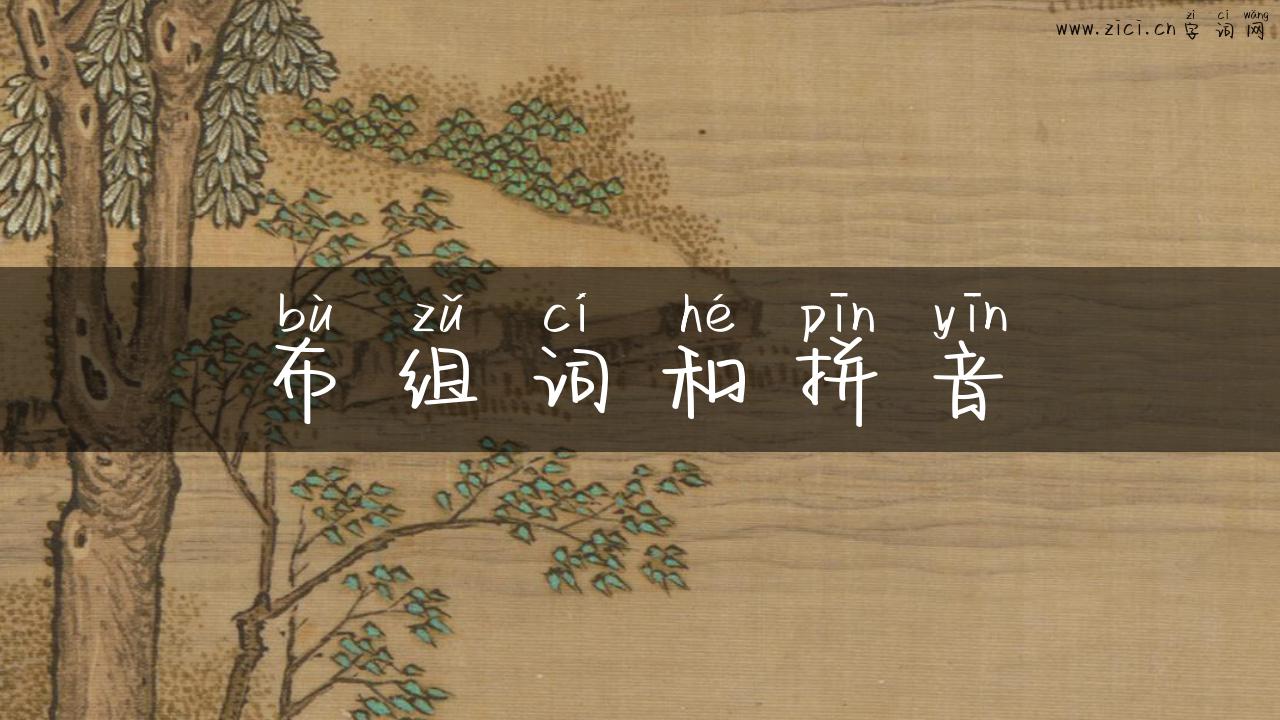 www.zici.cn 字词网
zì cí wǎng
bù zǔ cí hé pīn yīn
布组词和拼音